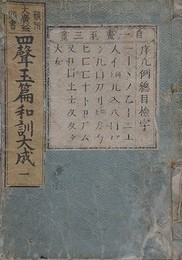 自一畫至三畫
序凡例總目檢字
一丨丶丿乙亅二亠
人亻儿入八冂冖
匕匚匸十卜卩厂厶
又口囗土士夂夊夕
大女
大廣益
四聲玉篇和訓大成 一